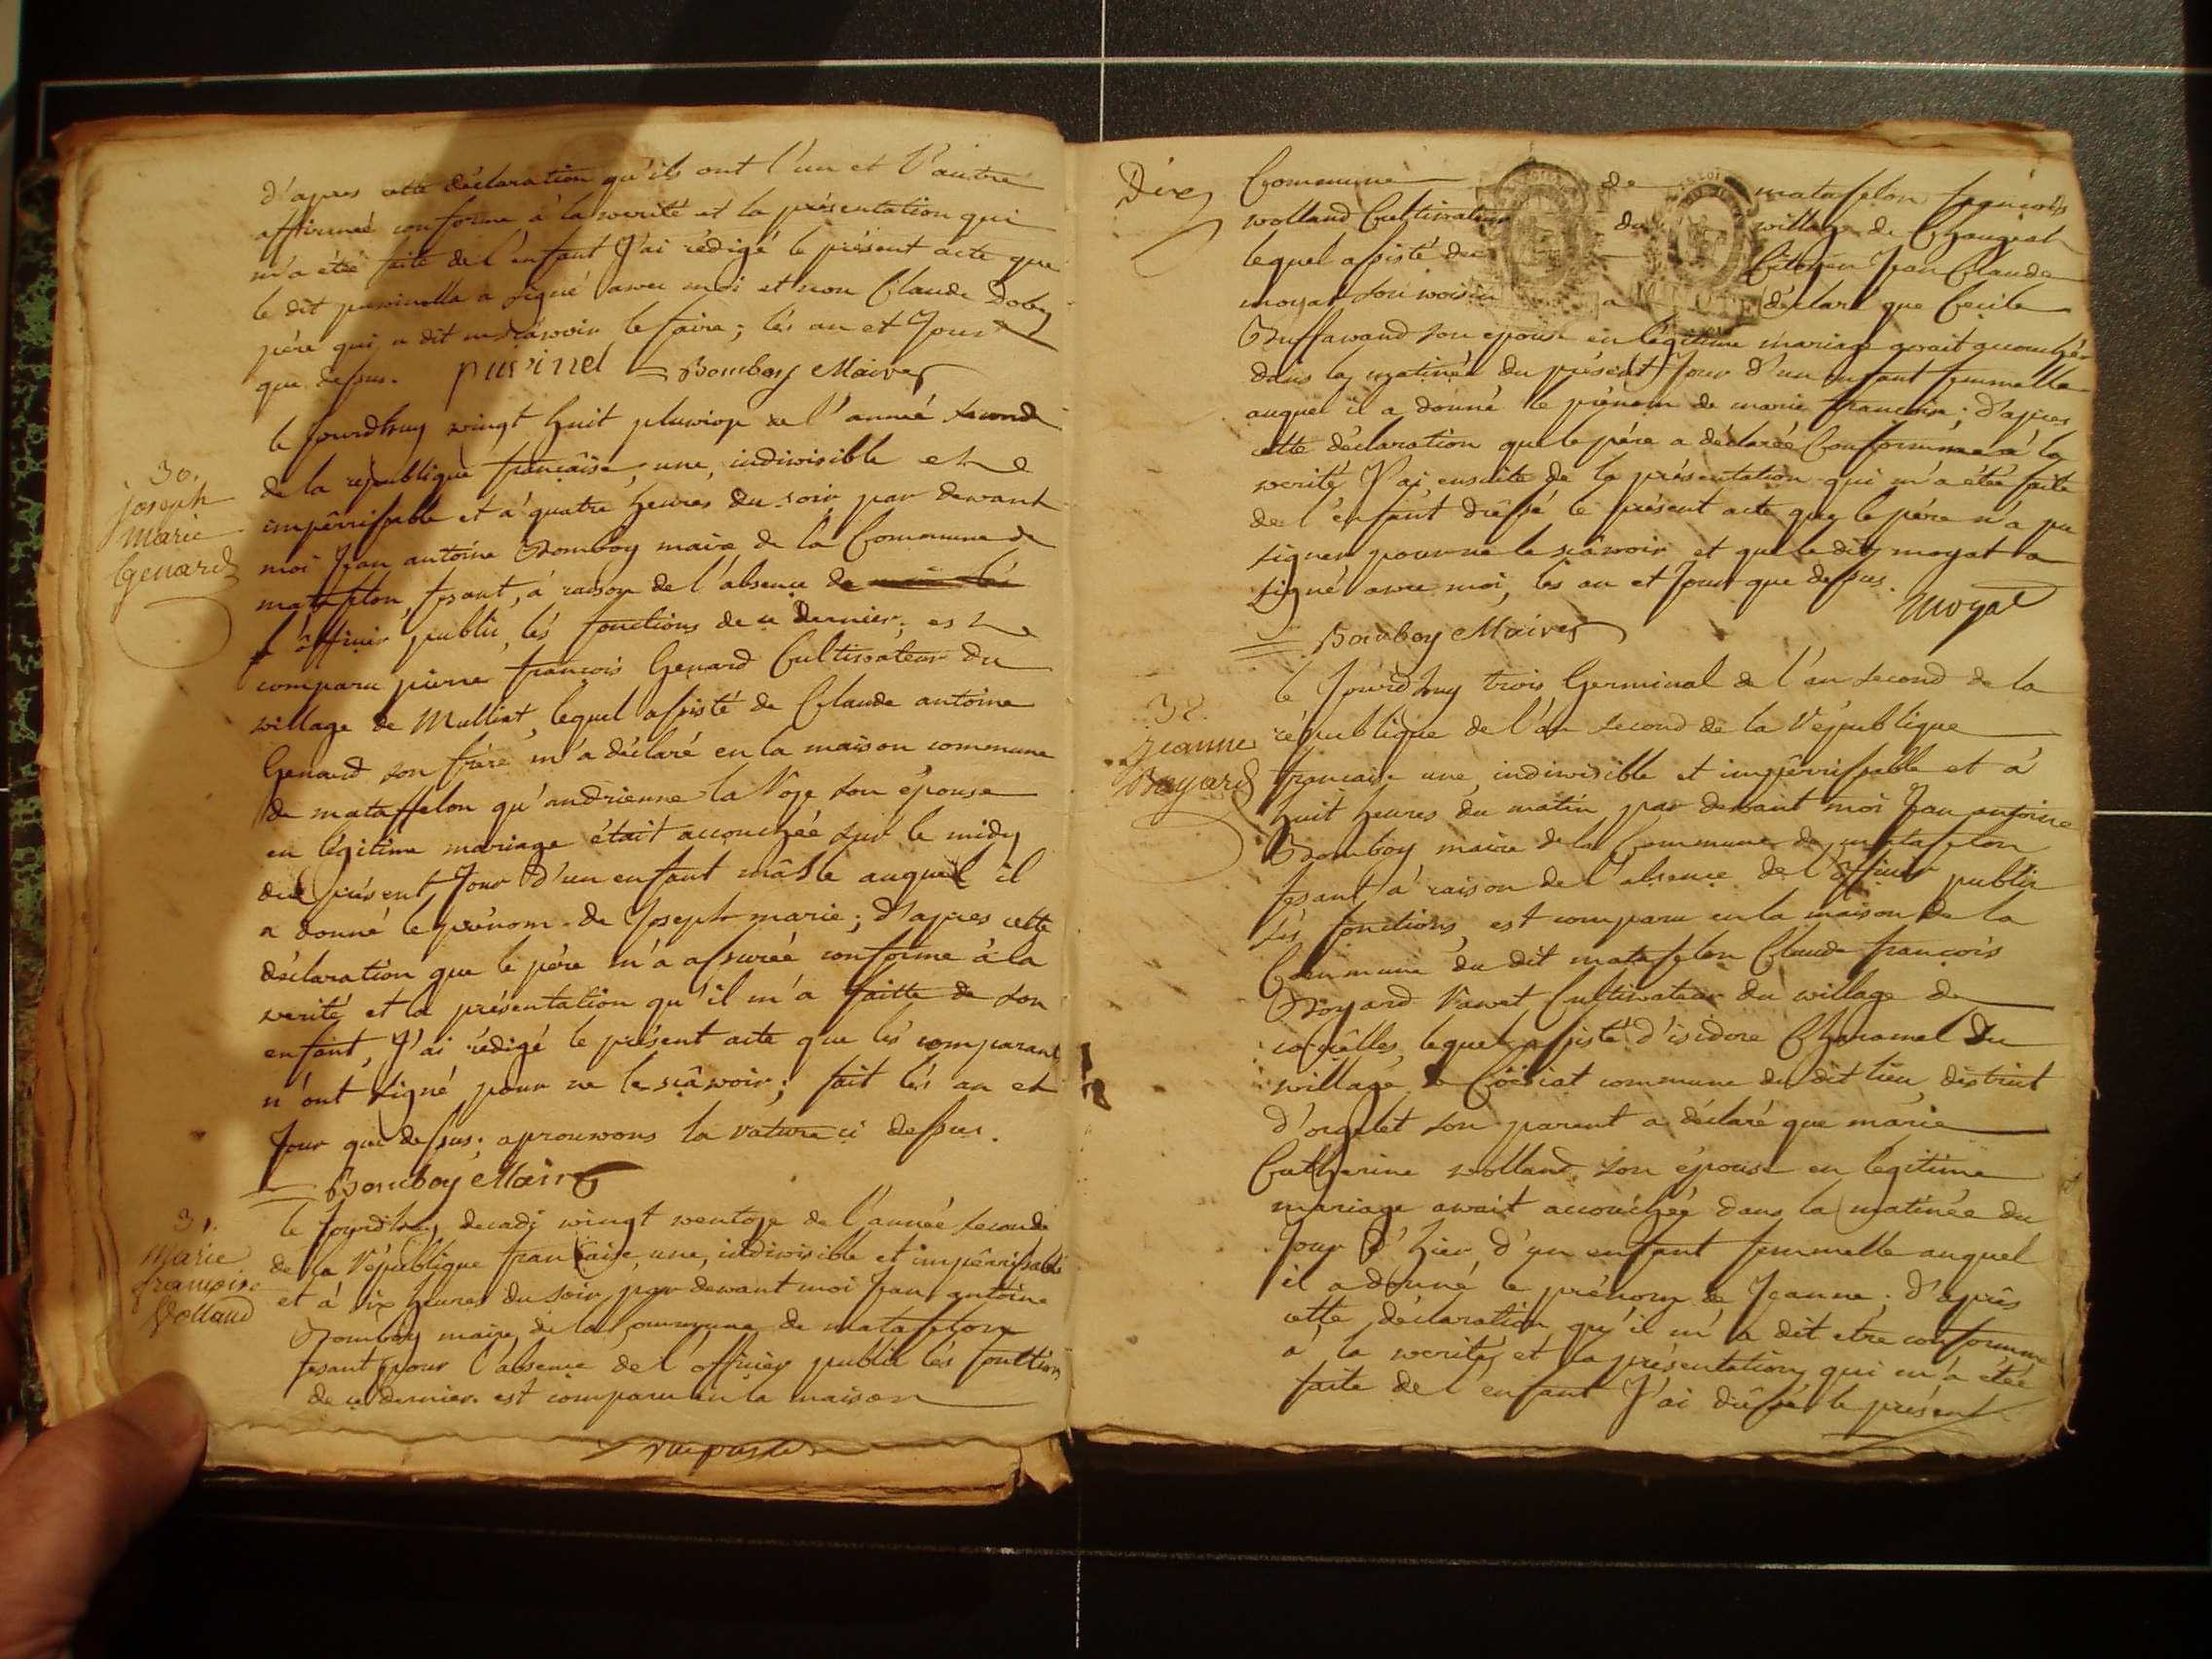 d'apres cette déclaration qu'ils ont l'un et l'autre
affirmée conforme à la werité et la présentation qui
m'a étée faite de l'enfant J'ai rédigé le présent acte que
le dit a signé awec moi et non Claude
père qui a dit ne sçâwoir le faire; lés an et Jour
que dessus. Bomboy Maire
le Jourdhuy wingt huit pluwiose de l'année seconde
30.
joseph
marie
Genard
de la république française, une, indiwisible et
impêrrissable et à quatre heures du soir par dewant
moi Jean antoine Bomboy maire de la Commune de
mataffelon, fesant, à raison de l'absence de
l'officier public, lés fonctions de ce dernier; est
comparu pierre françois Genard Cultiwateur du
willage de Mulliat, lequel assisté de Claude antoine
Genard son frère m'a déclaré en la maison commune
de mataffelon qu'andrienne la Voge son épouse
en légitime mariage était accouchée sur le midy
du présent Jour d'un enfant mâsle auquel il
a donné le prénom de Joseph marie; d'apres cette
déclaration que le père m'a assurée conforme à la
werité et la présentation qu'il m'a faitte de son
enfant, J'ai rédigé le présent acte que lés comparants
n'ont signé pour ne le sçâwoir; fait lés an et
Jour que dessus; aprouwons la rature ci dessus.
Bomboy Maire
31.
Marie
françoise
Volland
le Jourdhuy decadi wingt wentose de l'année seconde
de la République française, une, indiwisible et impêrrissable
et à six heures du soir, par dewant moi Jean antoine
Bomboy maire de la Commune de mataffelon
fesant pour l'absence de l'officier public lés fonctions
de ce dernier est comparu en la maison
Commune de mataffelon françois
wolland Cultiwateur du willage de Chaugeat
lequel assisté du Citoyen Jean Claude
moyat son woisin a déclaré que Cecile
Buffawand son epouse en légitime mariage await accouchée
dans la matinée du présent Jour d'un enfant femmelle
auquel il a donné le prénom de marie françoise; d'apres
cette déclaration que le père a déclarée Conformme à la
werité J'ai ensuite de la présentation qui m'a étée faite
de l'enfant dressé le présent acte que le père n'a pu
signer pour ne le sçâwoir et que le dit moyat a
signé awec moi, lés an et Jour que dessus.
moyat
Bomboy Maire
32.
Jeanne
Boyard
le Jourdhuy trois Germinal de l'an second de la
république de l'an second de la République
française une, indiwisible et impêrrissable et à
huit heures du matin par dewant moi Jean antoine
Bomboy maire de la Commune de mataffelon
fesant à raison de l'absence de l'officier public
sés fonctions, est comparu en la maison de la
Commune du dit mataffelon Claude françois
Boyard Cultiwateur du willage de
lequel assisté d'isidore Charamel du
willage de Coësiat commune du dit lieu, district
d'orgelet son parent a déclaré que marie
Catherine wolland son épouse en legitime
mariage await accouchée dans la matinée du
Jour d'hier d'un enfant femmelle auquel
il a donné le prénom de Jeanne; d'après
cette déclaration qu'il m'a dit etre conformme
à la werité, et la présentation qui m'a étée
faite de l'enfant J'ai dressé le présent